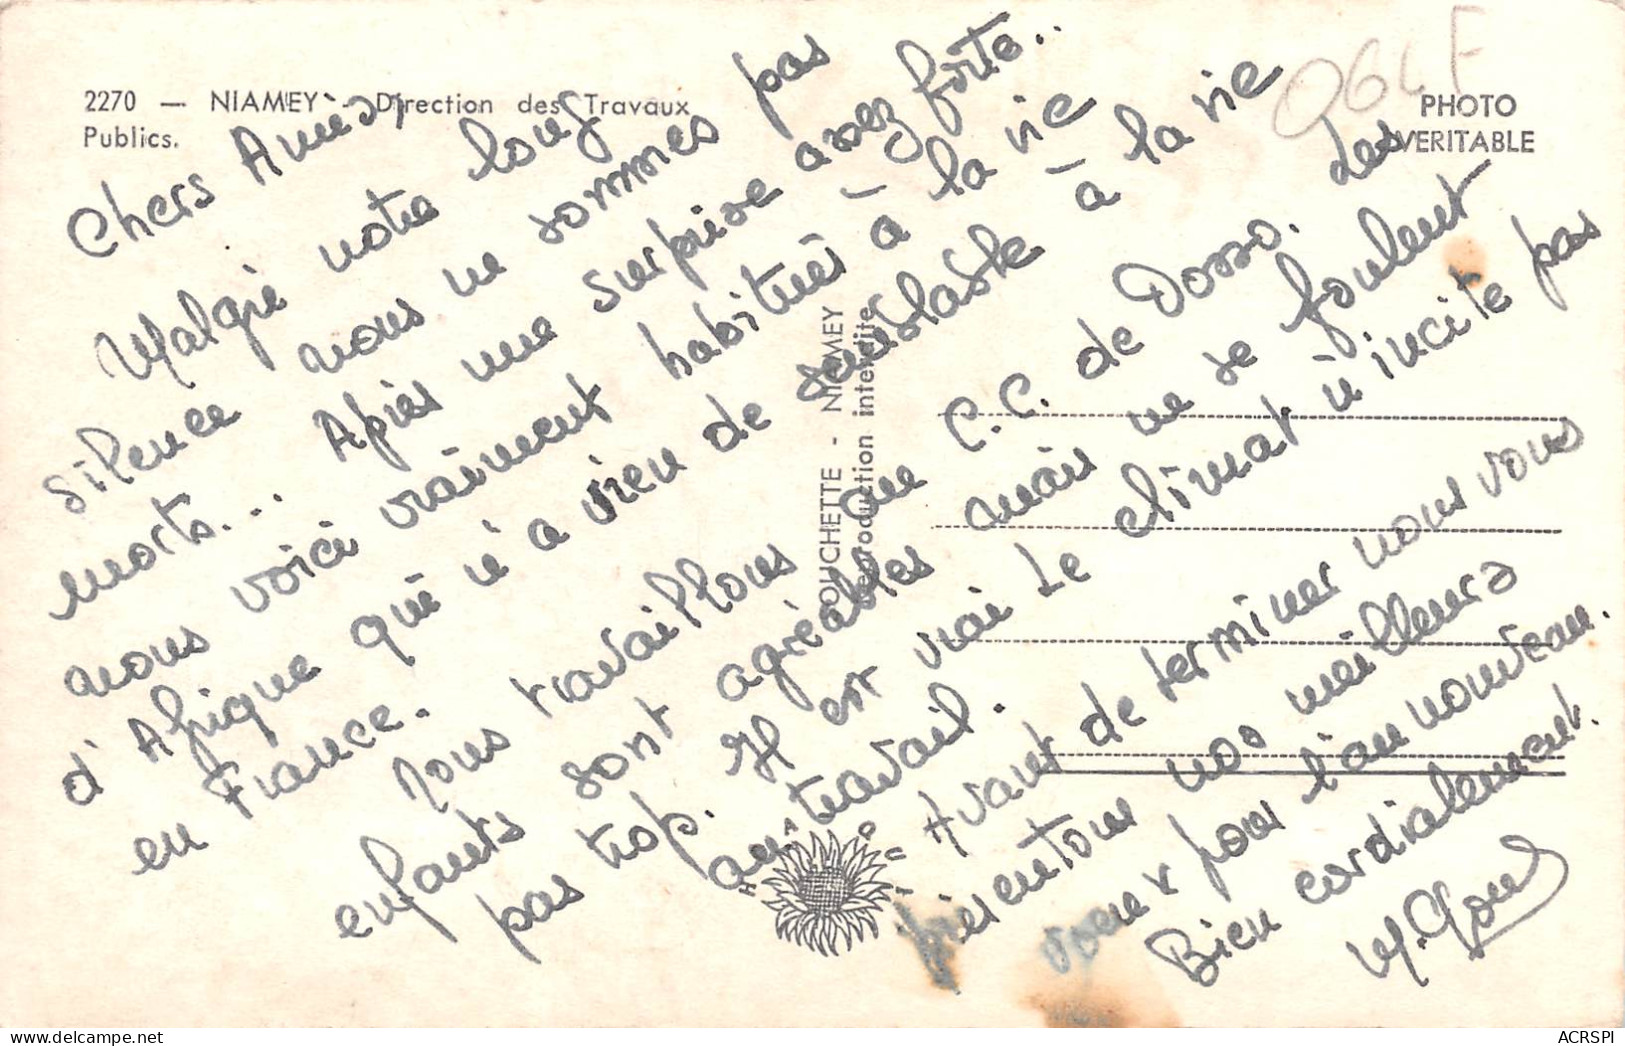 2270 — NIAMEY - Direction des Travaux
Publics.
PHOTO
VERITABLE
Chers Amis,
Malgré notre long
silence nous ne sommes pas
morts... Après une surprise assez forte..
nous voici vraiment habitués à la vie
d'Afrique qui n'a rien de semblable à la vie
en France.
Nous travaillons au C.C. de Dosso. Les
enfants sont agréables mais ne se foulent
pas trop. Il est vrai Le climat n'incite pas
au travail.
Avant de terminer nous vous
présentons nos meilleurs
voeux pour l'an nouveau.
Bien cordialement.
NIAMEY
Reproduction interdite
HOA-QUI
ACRSPI